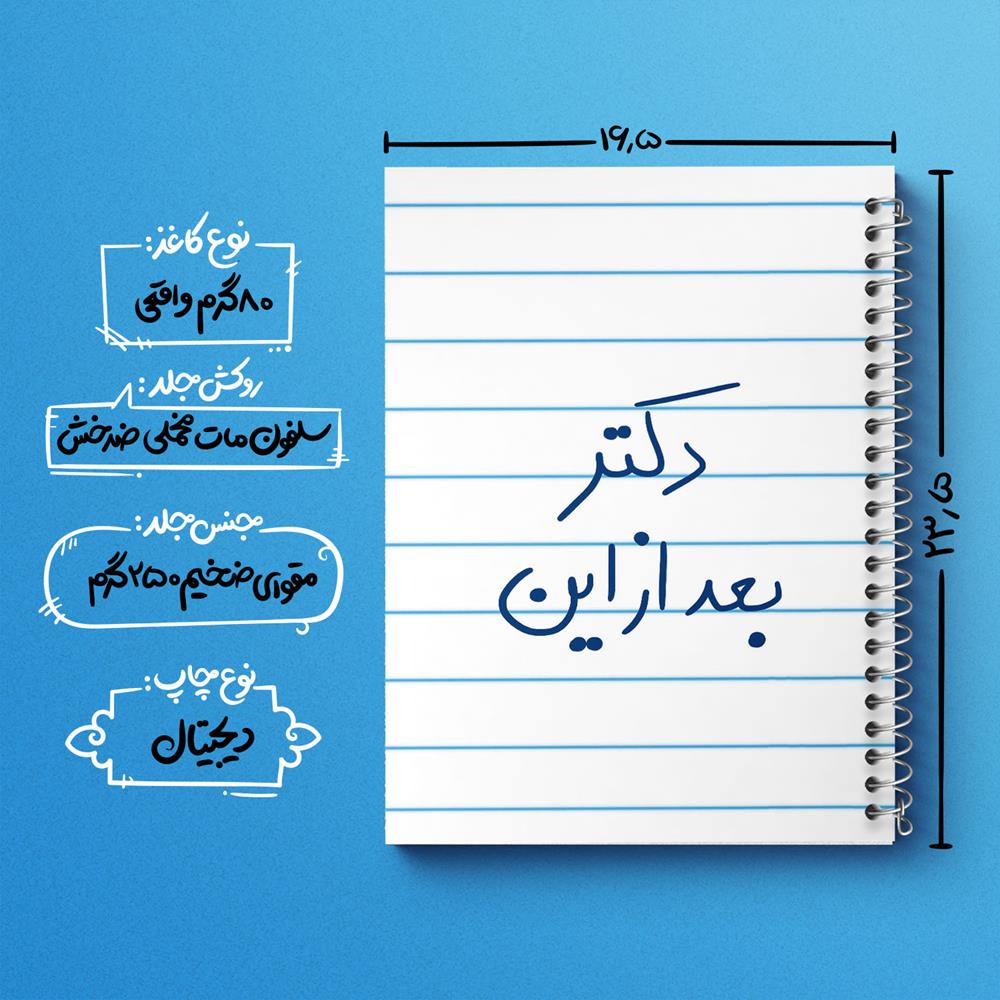 ۱۶,۵
۲۳,۵
نوع کاغذ:
۸۰ گرم واقعی
روکش جلد:
سلفون مات مخملی ضدخش
جنس جلد:
مقوای ضخیم ۲۵۰ گرم
نوع چاپ:
دیجیتال
دکتر
بعد از این